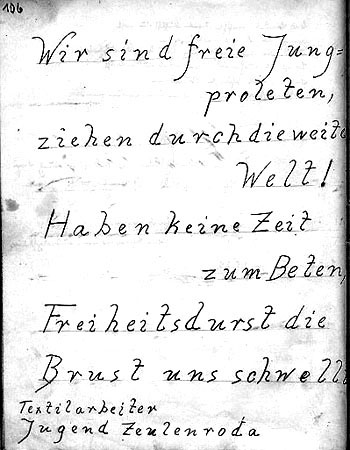 106
Wir sind freie Jung=
proleten,
ziehen durch die weite
Welt!
Haben keine Zeit
zum Beten,
Freiheitsdurst die
Brust uns schwellt
Textilarbeiter
Jugend Zeulenroda